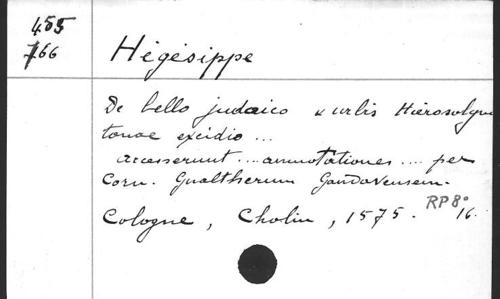 455
766
Hégésippe
De bello judaico & urbis Hierosolymi
tanae excidio ...
accesserunt .... annotationes .... per
Corn. Gualtherum Gandavensem.
Cologne, Cholin, 1575. RP 8°
16.